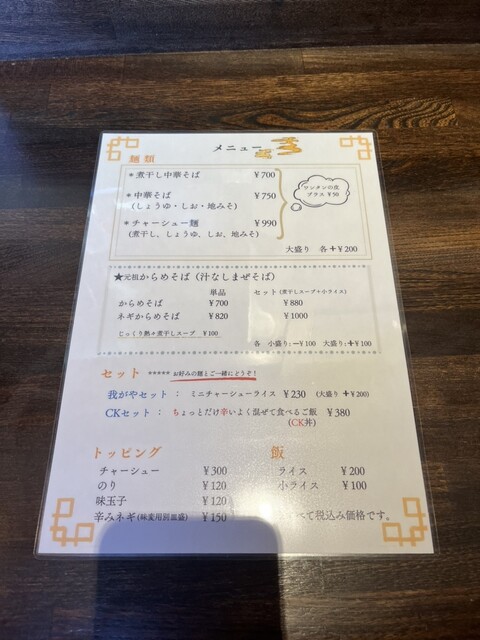 メニュー
麺類
*煮干し中華そば ¥700
*中華そば ¥750
(しょうゆ・しお・地みそ)
*チャーシュー麺 ¥990
(煮干し、しょうゆ、しお、地みそ)
ワンタンの皮
プラス ¥50
大盛り 各+¥200
★元祖からめそば(汁なしまぜそば)
単品 セット(煮干しスープ+小ライス)
からめそば ¥700 ¥880
ネギからめそば ¥820 ¥1000
じっくり熱々煮干しスープ ¥100
各 小盛り:ー¥100 大盛り:+¥100
セット ***** お好みの麺とご一緒にどうぞ!
我がやセット : ミニチャーシューライス ¥230 (大盛り +¥200)
CKセット : ちょっとだけ辛いよく混ぜて食べるご飯 ¥380
(CK丼)
トッピング
チャーシュー ¥300
のり ¥120
味玉子 ¥120
辛みネギ(味変用別皿盛) ¥150
飯
ライス ¥200
小ライス ¥100
べて税込み価格です。